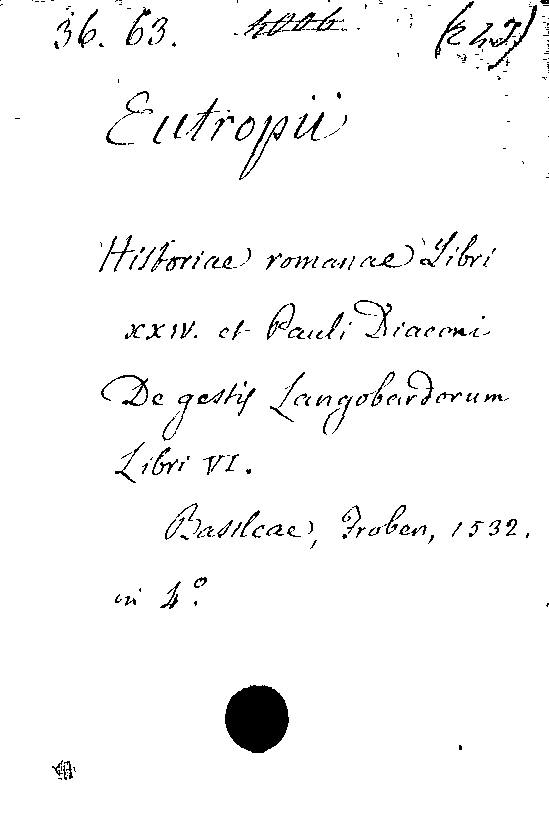 36. 63. 4006
Eutropii
Historiae romanae Libri
XXIV. et Pauli Diaconi
De gestis Langobardorum
Libri VI.
Basileae, Froben, 1532.
in 4º.